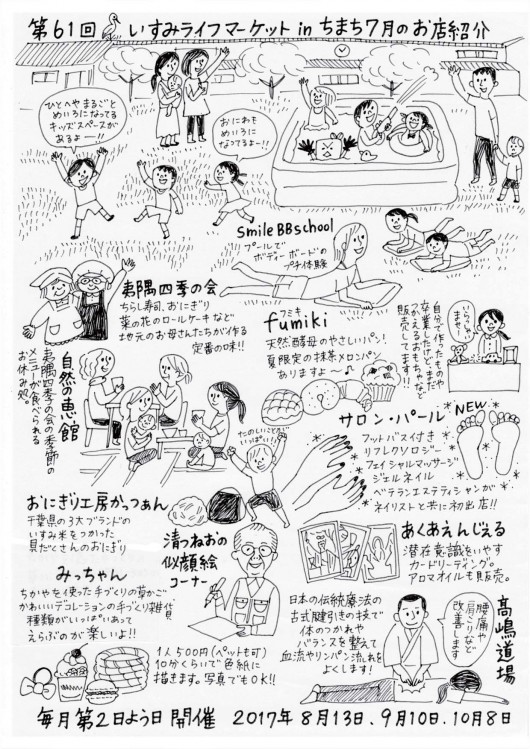 第61回 いすみライフマーケット in ちまち 7月のお店紹介
ひとへや まるごと
めいろになってる
キッズスペースが
あるよー!!
おにわも
めいろに
なってるよー!!
smile BBschool
プールで
ボディーボードの
プチ体験
夷隅四季の会
ちらし寿司、おにぎり
菜の花のロールケーキなど
地元のお母さんたちが作る
定番の味!!
フミキ
fumiki
天然酵母のやさしいパン!
夏限定の抹茶メロンパン
ありますよ〜♪
いらっしゃ
ませー!
自分で作ったものや
卒業したけどまだ
つかえるおもちゃなど
販売してます!!
自然の恵館
夷隅四季の会の季節の
メニューが食べられる
お休み処。
たのしいことが
いっぱい!
サロン・パール NEW
フットバス付き
リフレクソロジー
フェイシャルマッサージ
ジェルネイル
ベテランエステティシャンが
ネイリストと共に初出店!!
おにぎり工房かっつぁん
千葉県の3大ブランドの
いすみ米をつかった
具だくさんのおにぎり
清つねおの
似顔絵
コーナー
あくあえんじぇる
潜在意識をいやす
カードリーディング。
アロマオイルも販売。
みっちゃん
ちかやを使った手づくりの草かご
かわいいデコレーションの手づくり雑貨
種類がいっぱいあって
えらぶのが楽しいよ!!
1人500円(ペットも可)
10分くらいで色紙に
描きます。写真でもOK!!
日本の伝統療法の
古式腱引きの技で
体のつかれや
バランスを整えて
血流やリンパン流れを
よくします!
腰痛や
肩こりなど
改善します
高嶋道場
毎月第2日よう日 開催 2017年 8月13日、9月10日、10月8日